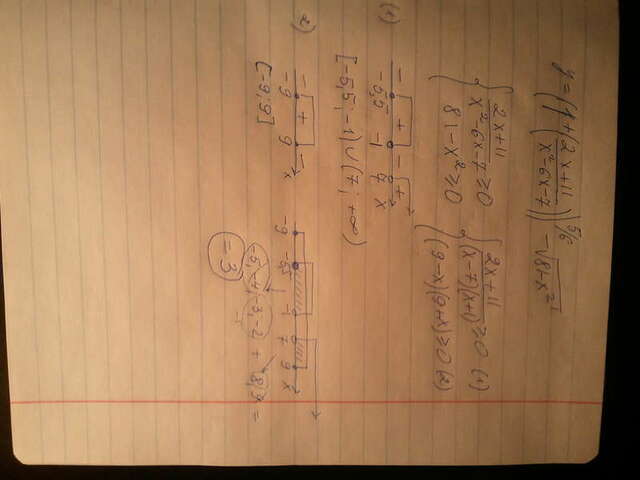 y = (1 + (2x+11 / x²-6x-7))^5/6 - √81-x²
{ 2x+11 / x²-6x-7 ≥ 0 { 2x+11 / (x-7)(x+1) ≥ 0 (1)
81-x² ≥ 0 (9-x)(9+x) ≥ 0 (2)
(1) - + - +
-5,5 -1 7 x
[-5,5; -1) ∪ (7; +∞)
2) - + -
-9 9 x -9 -5,5 -1 7 9 x
[-9; 9] -5, -4, -3, -2 + 8, 9 =
= -3